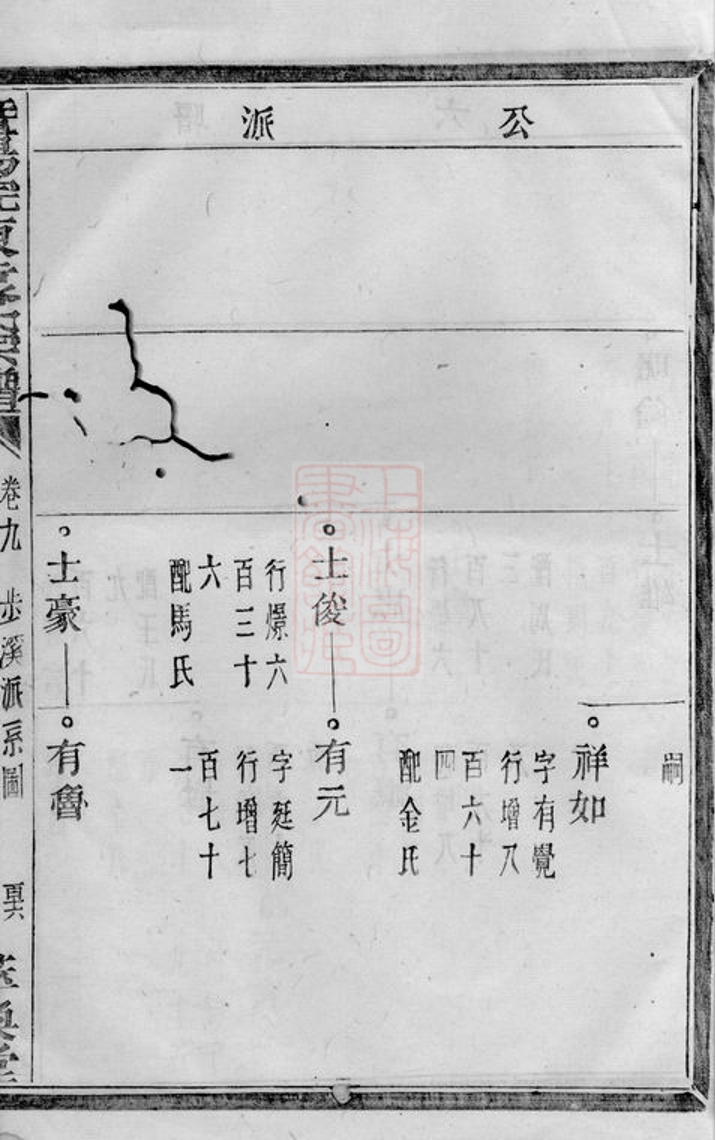 公派
嗣
祥如
字有覺
行增八
百六十
四
配金氏
士俊
行爆六
百三十
六
配馬氏
有元
字廷簡
行增七
百七十
一
士豪
有魯
卷九 步溪派系圖